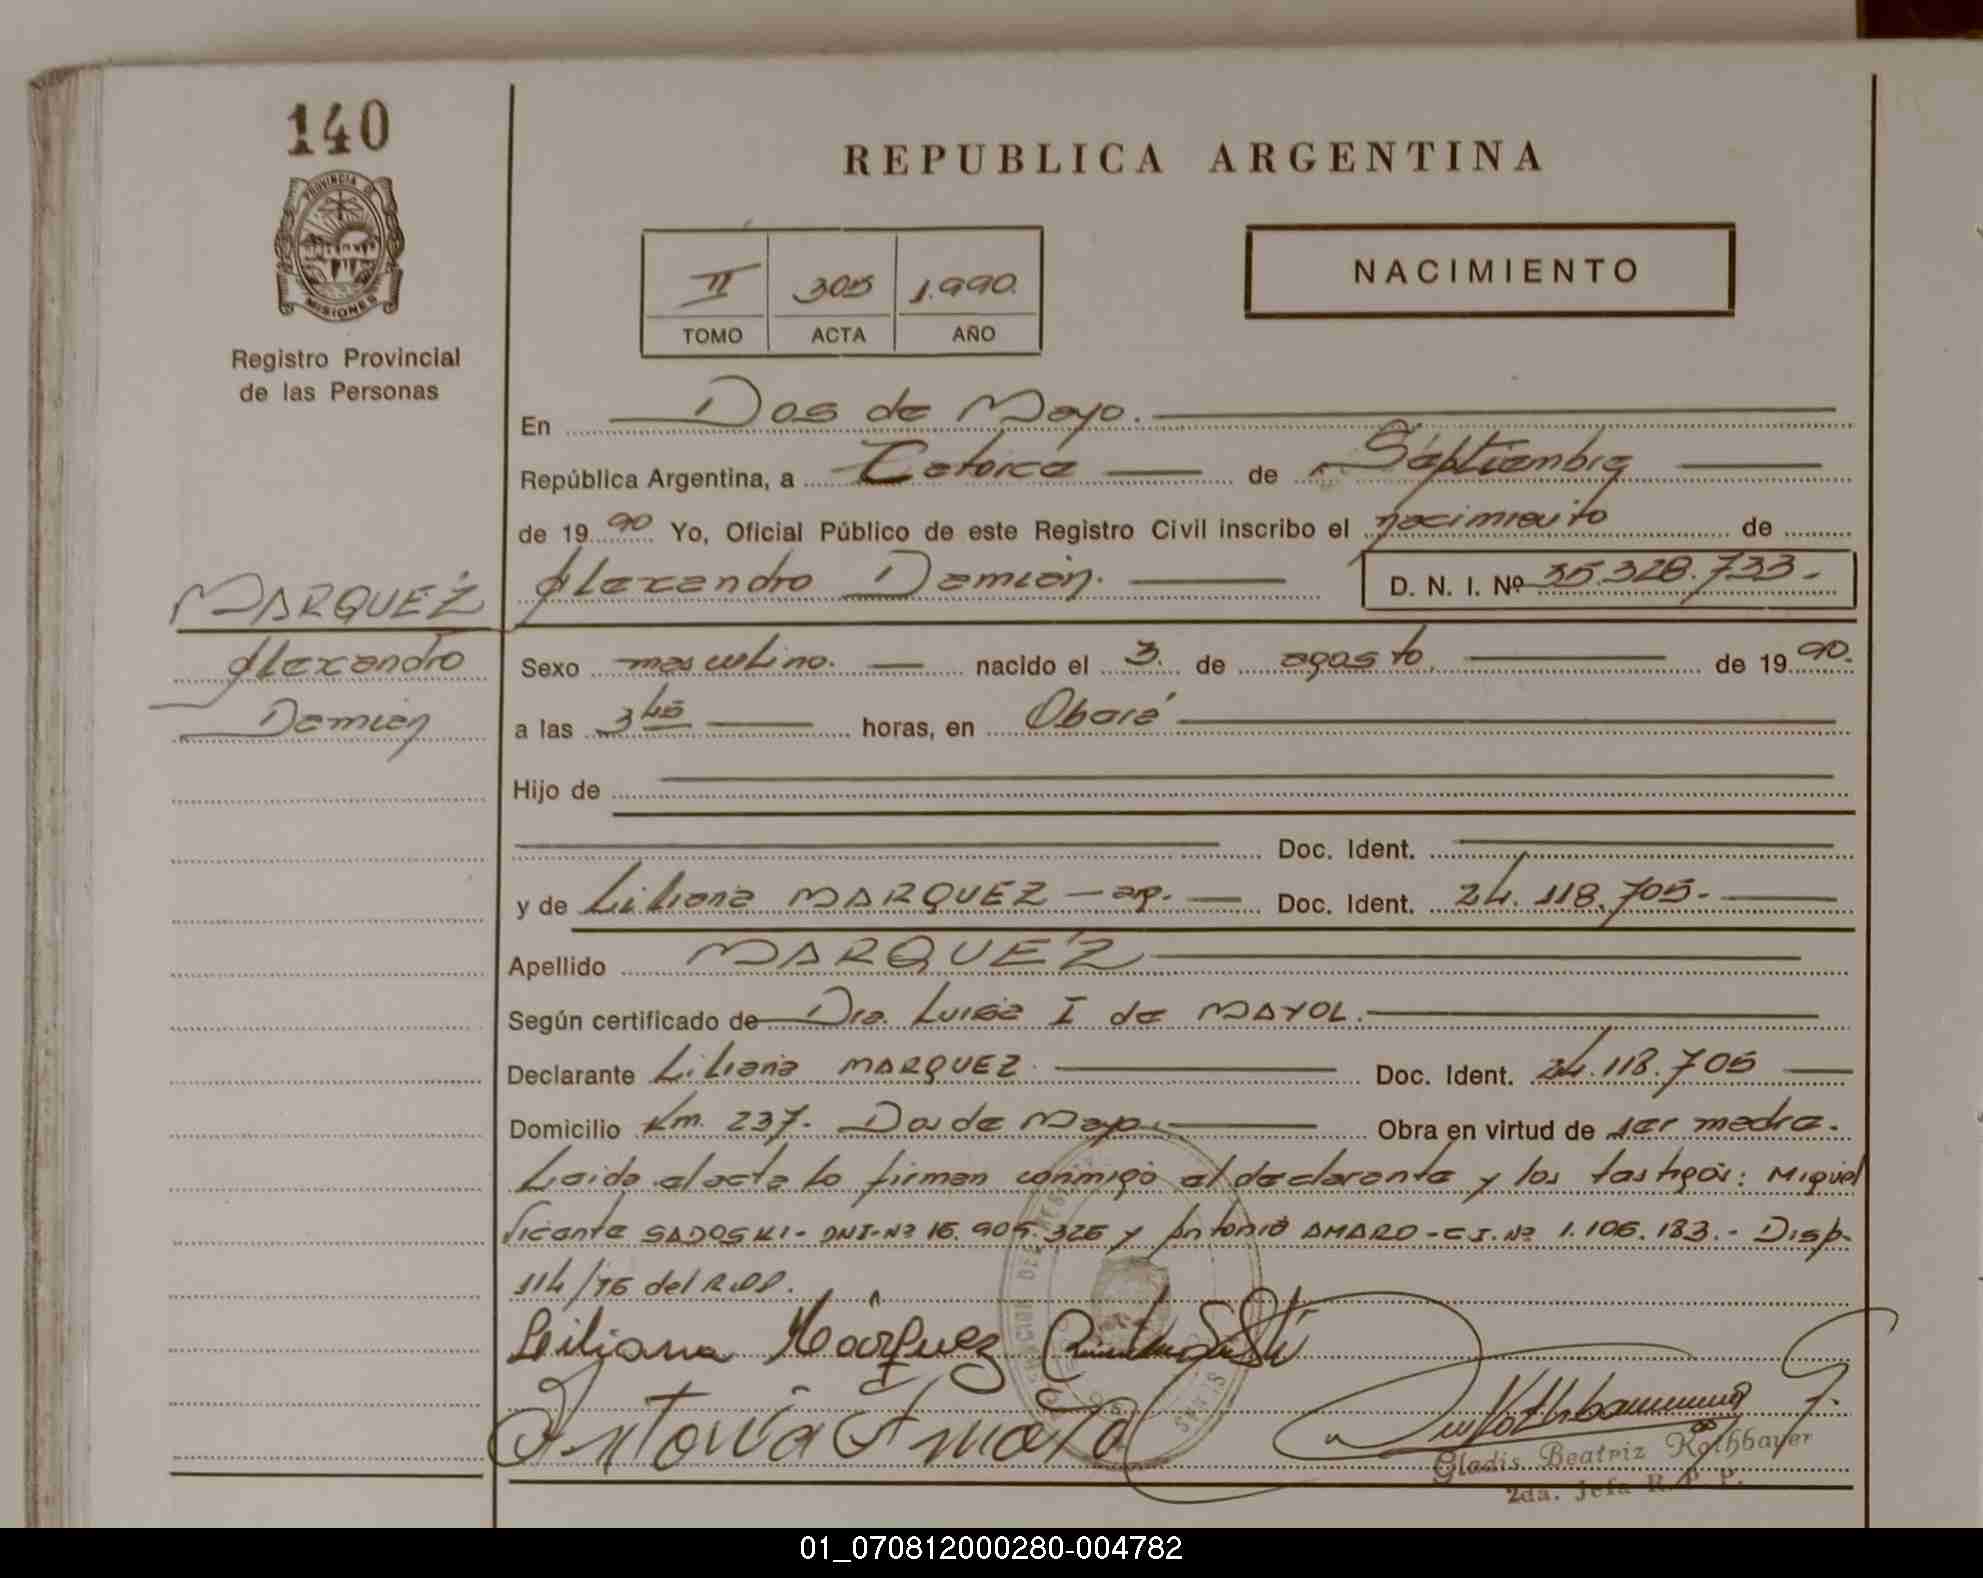 140
PROVINCIA DE
MISIONES
Registro Provincial
de las Personas
REPUBLICA ARGENTINA
II 305 1.990.
TOMO ACTA AÑO
NACIMIENTO
En Dos de Mayo.
República Argentina, a Catorce de Septiembre
de 1990 Yo, Oficial Público de este Registro Civil inscribo el nacimiento de
Alexandro Damián. D. N. I. Nº 35.328.733.-
MARQUEZ
Alexandro
Damián
Sexo masculino. nacido el 3. de agosto. de 1990.
a las 3 45 horas, en Oberá
Hijo de
Doc. Ident.
y de Liliana MARQUEZ - arg. Doc. Ident. 24.118.705.-
Apellido MARQUEZ
Según certificado de Dra. Luisa I de MAYOL.
Declarante Liliana MARQUEZ Doc. Ident. 24.118.705
Domicilio Km. 237. Dos de Mayo. Obra en virtud de ser madre.
Leida el acta lo firman conmigo el declarante y los testigos: Miguel
Vicente SADOSKI - DNI-Nº 16.905.326 y Antonio AMARO - C.I. Nº 1.106.183.- Disp.
114/76 del R.P.P.
Liliana Márquez
Antonia Amaro
Gladis Beatriz Rothbayer
2da. Jefa R. P. P.
01_070812000280-004782